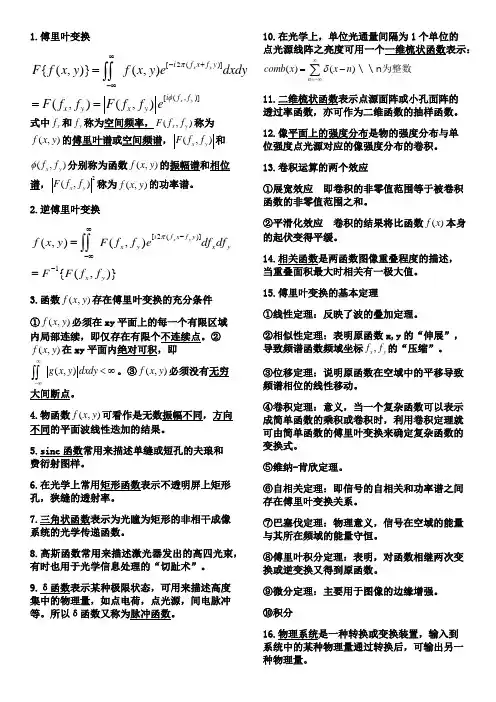 1.傅里叶变换
F{f(x,y)} = ∬_{-∞}^{∞} f(x,y)e^{[-i2π(f_x x+f_y y)]}dxdy
= F(f_x,f_y) = |F(f_x,f_y)|e^{[iφ(f_x,f_y)]}
式中f_x和f_y称为空间频率，F(f_x,f_y)称为
f(x,y)的傅里叶谱或空间频谱，|F(f_x,f_y)|和
φ(f_x,f_y)分别称为函数f(x,y)的振幅谱和相位
谱，|F(f_x,f_y)|²称为f(x,y)的功率谱。
2.逆傅里叶变换
f(x,y) = ∬_{-∞}^{∞} F(f_x,f_y)e^{[i2π(f_x x-f_y y)]}df_x df_y
= F^{-1}{F(f_x,f_y)}
3.函数f(x,y)存在傅里叶变换的充分条件
①f(x,y)必须在xy平面上的每一个有限区域
内局部连续，即仅存在有限个不连续点。②
f(x,y)在xy平面内绝对可积，即
∬_{-∞}^{∞} |g(x,y)|dxdy<∞。③f(x,y)必须没有无穷
大间断点。
4.物函数f(x,y)可看作是无数振幅不同，方向
不同的平面波线性迭加的结果。
5.sinc函数常用来描述单缝或矩孔的夫琅和
费衍射图样。
6.在光学上常用矩形函数表示不透明屏上矩形
孔，狭缝的透射率。
7.三角状函数表示为光瞳为矩形的非相干成像
系统的光学传递函数。
8.高斯函数常用来描述激光器发出的高四光束，
有时也用于光学信息处理的“切趾术”。
9.δ函数表示某种极限状态，可用来描述高度
集中的物理量，如点电荷，点光源，间电脉冲
等。所以δ函数又称为脉冲函数。
10.在光学上，单位光通量间隔为1个单位的
点光源线阵之亮度可用一个一维梳状函数表示：
comb(x) = ∑_{n=-∞}^{∞} δ(x-n) \\n为整数
11.二维梳状函数表示点源面阵或小孔面阵的
透过率函数，亦可作为二维函数的抽样函数。
12.像平面上的强度分布是物的强度分布与单
位强度点光源对应的像强度分布的卷积。
13.卷积运算的两个效应
①展宽效应 即卷积的非零值范围等于被卷积
函数的非零值范围之和。
②平滑化效应 卷积的结果将比函数f(x)本身
的起伏变得平缓。
14.相关函数是两函数图像重叠程度的描述，
当重叠面积最大时相关有一极大值。
15.傅里叶变换的基本定理
①线性定理：反映了波的叠加定理。
②相似性定理：表明原函数x,y的“伸展”，
导致频谱函数频域坐标f_x,f_y的“压缩”。
③位移定理：说明原函数在空域中的平移导致
频谱相位的线性移动。
④卷积定理：意义，当一个复杂函数可以表示
成简单函数的乘积或卷积时，利用卷积定理就
可由简单函数的傅里叶变换来确定复杂函数的
变换式。
⑤维纳-肯欣定理。
⑥自相关定理：即信号的自相关和功率谱之间
存在傅里叶变换关系。
⑦巴塞伐定理：物理意义，信号在空域的能量
与其所在频域的能量守恒。
⑧傅里叶积分定理：表明，对函数相继两次变
换或逆变换又得到原函数。
⑨微分定理：主要用于图像的边缘增强。
⑩积分
16.物理系统是一种转换或变换装置，输入到
系统中的某种物理量通过转换后，可输出另一
种物理量。